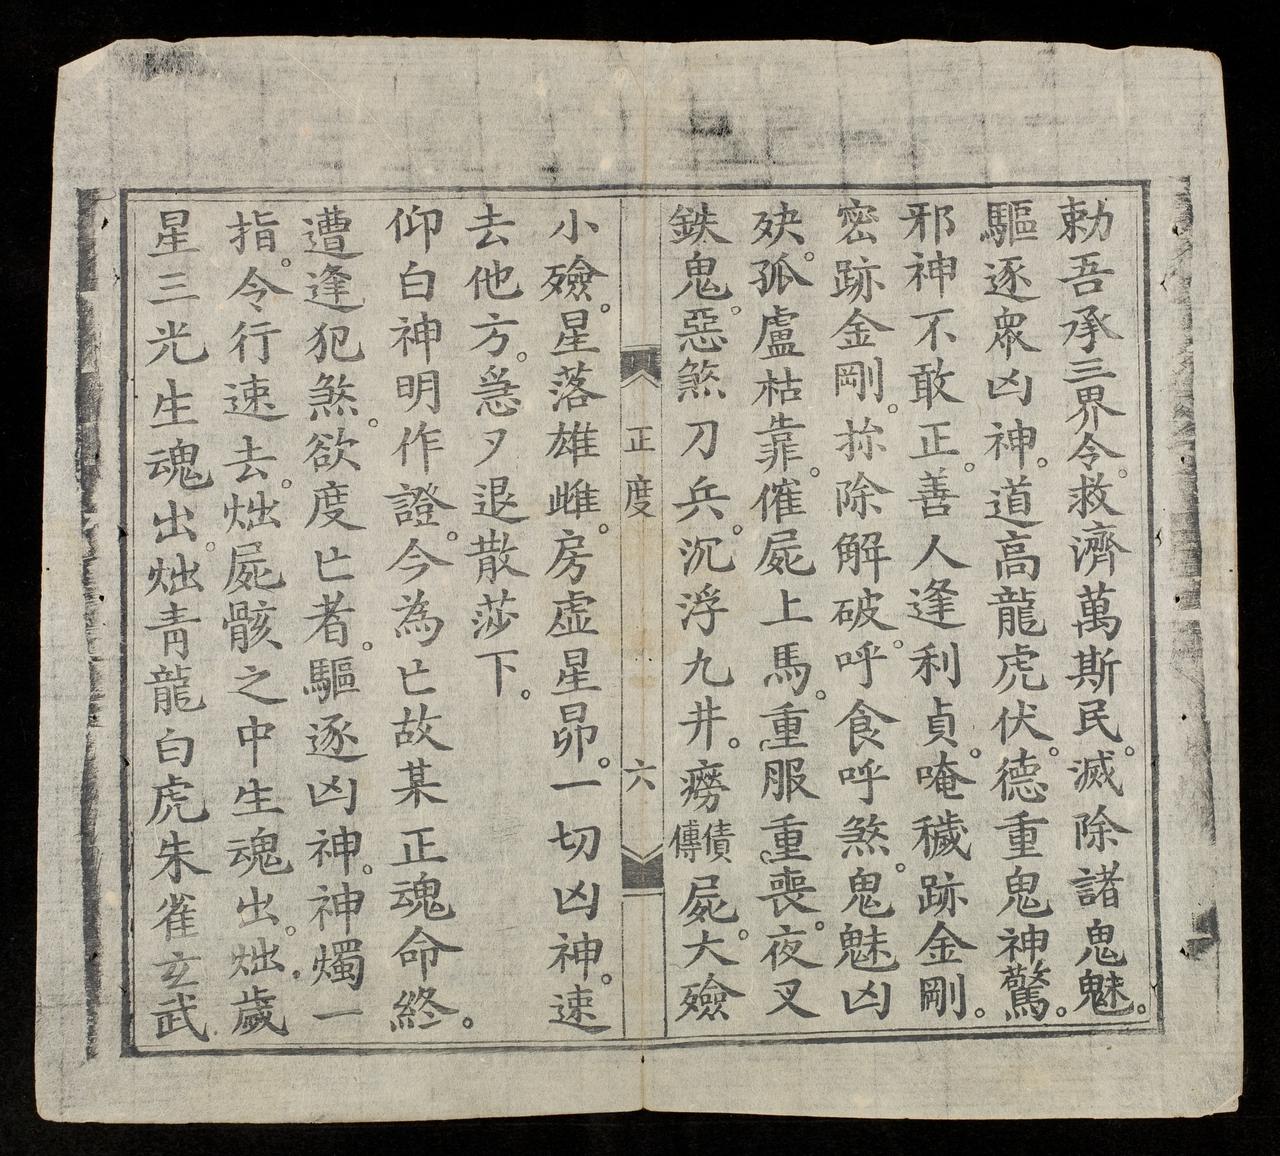 勅吾承三界令。救濟萬斯民。滅除諸鬼魅。
驅逐衆凶神。道高龍虎伏。德重鬼神驚。
邪神不敢正。善人逢利貞。唵穢跡金剛。
密跡金剛。捺除解破。呼食呼煞。鬼魅凶
殃。孤盧枯靠。催屍上馬。重服重喪。夜叉
鉄鬼。惡煞刀兵。沉浮九井。癆債傳屍。大殮
正度 六
小殮。星落雄雌。房虛星昴。一切凶神。速
去他方。急〻退散莎下。
仰白神明作證。今為亡故某正魂命終。
遭逢犯煞。欲度亡者。驅逐凶神。神燭一
指。令行速去。炪屍骸之中生魂出。炪歲
星三光生魂出。炪青龍白虎朱雀玄武